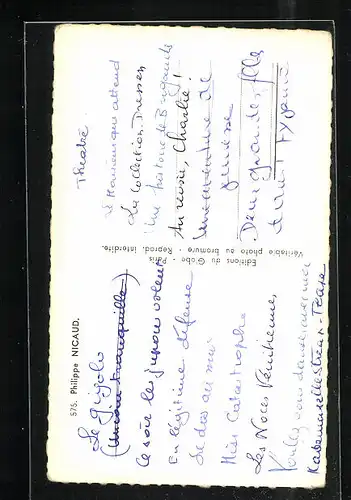 575. Philippe NICAUD.
Le gigolo
Ce soir les jupons volent
En légitime défense
Le dos au mur
Miss Catastrophe
Les Noces Vénitiennes
Voulez vous danser avec moi
Mademoiselle Strean-Tease
Editions du Globe - Paris
Véritable photo au bromure - Reprod. interdite.
Théatre
attend
La Collection Dressen
Une histoire de Brigands
Au revoir, Charlie!
Une aventure de
jeunesse
Deux grandes filles